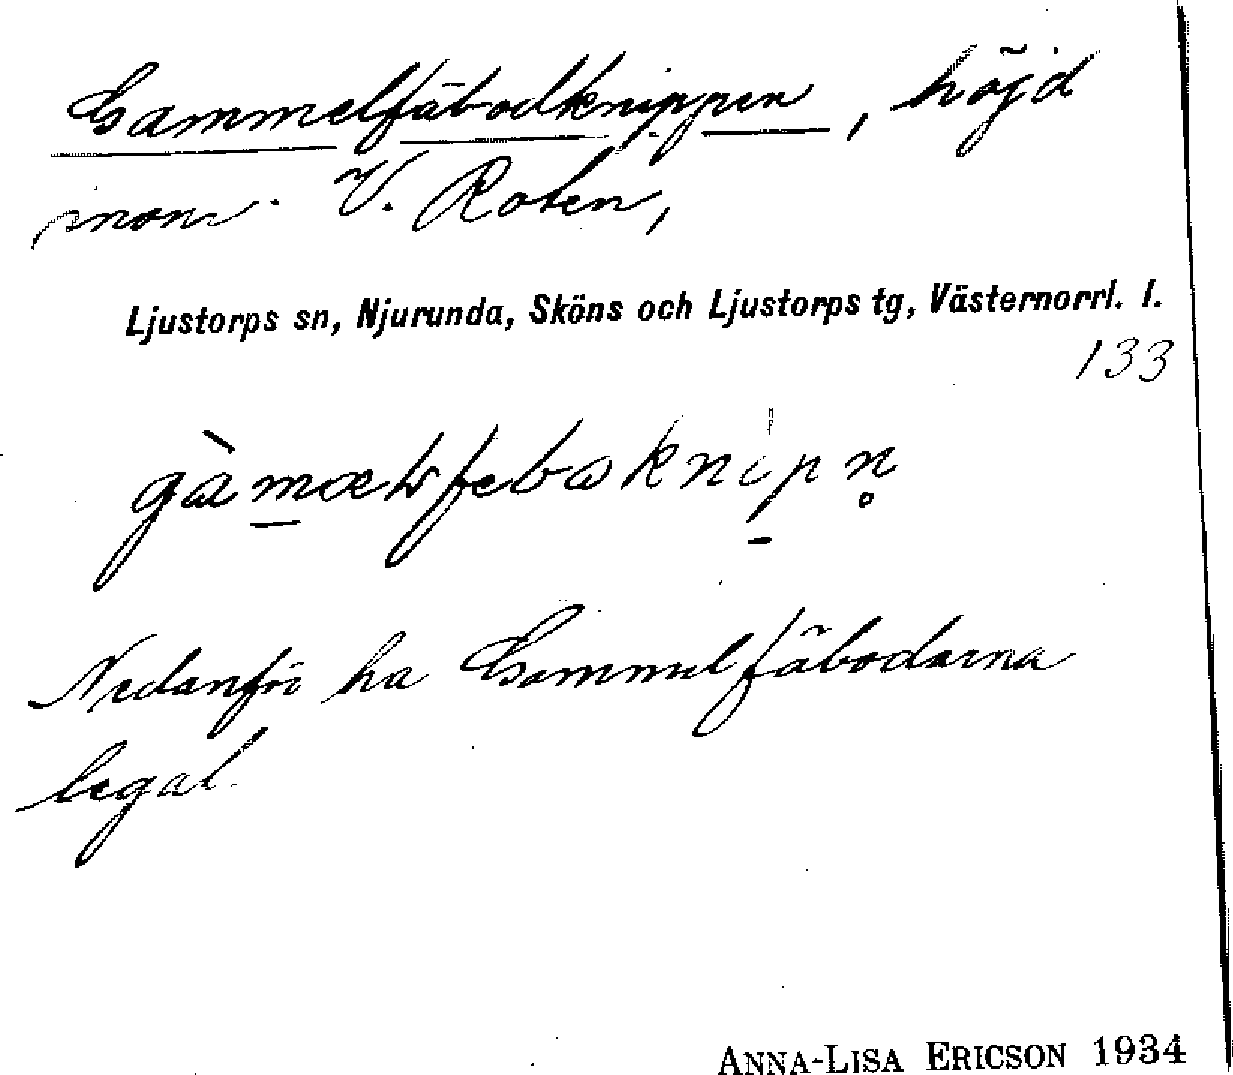 Gammelfäbodknippen, höjd
inom V. Roten,
Ljustorps sn, Njurunda, Sköns och Ljustorps tg, Västernorrl. l.
133
Nedanför ha Gammelfäbodarna
legat.
ANNA-LISA ERICSON 1934